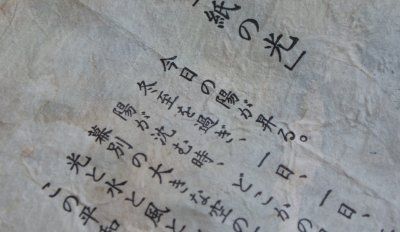 紙の光」
今日の陽が昇る。
冬至を過ぎ、一日、一日、
陽が沈む時、どこかの
幕別の大きな空の
光と水と風と
この平和